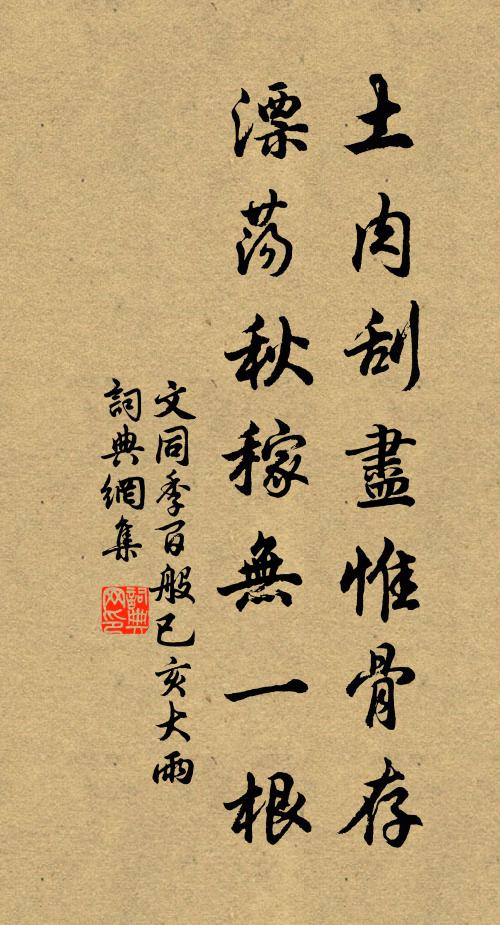 土肉刮盡惟骨存
漂蕩秋稼無一根
文同季百般已亥大雨
詞典網集
詞典網印